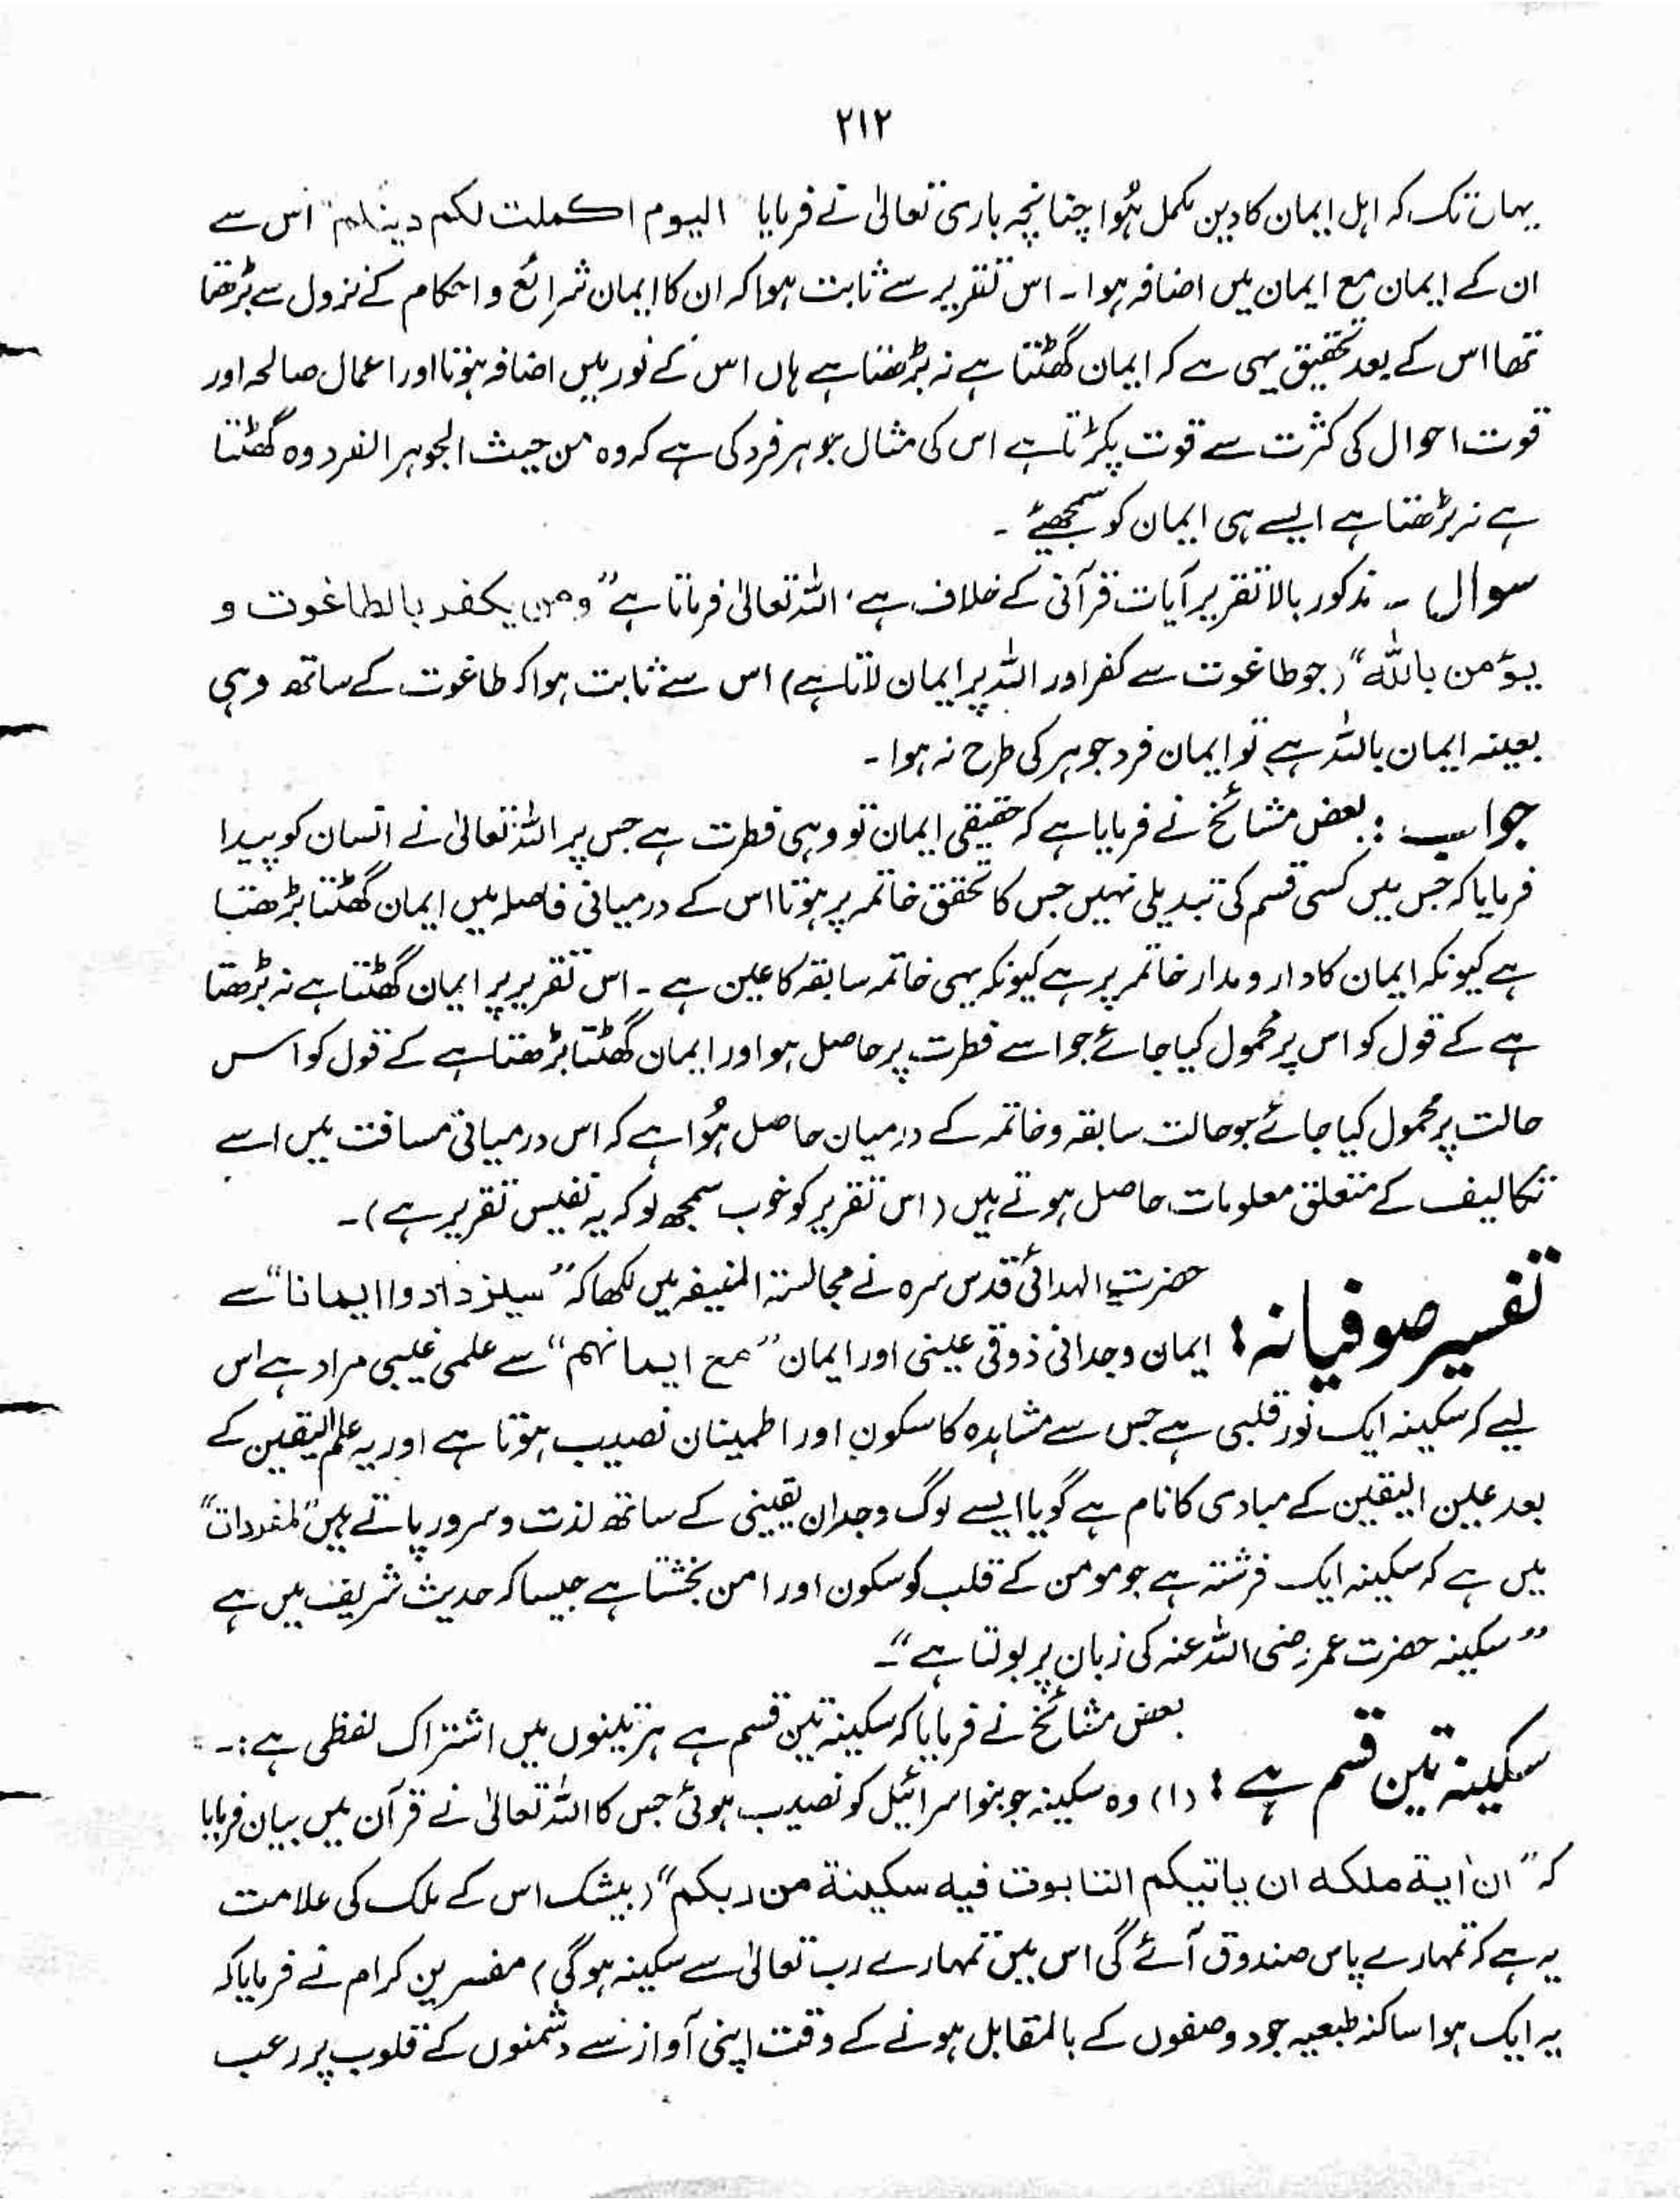 ۲۱۲
یہاں تک کہ اہل ایمان کا دین مکمل ہُوا چنانچہ باری تعالیٰ نے فرمایا "الیوم اکملت لکم دینکم" اس سے
ان کے ایمان مع ایمان میں اضافہ ہوا۔ اس تقریر سے ثابت ہوا کہ ان کا ایمان شرائع و احکام کے نزول سے بڑھتا
تھا اس کے بعد تحقیق یہی ہے کہ ایمان گھٹتا ہے نہ بڑھتا ہے ہاں اس کے نور میں اضافہ ہوتا اور اعمال صالحہ اور
قوت احوال کی کثرت سے قوت پکڑتا ہے اس کی مثال جوہر فرد کی ہے کہ وہ من حیث الجوہر الفرد وہ گھٹتا
ہے نہ بڑھتا ہے ایسے ہی ایمان کو سمجھیئے۔
سوال ۔ مذکور بالا تقریر آیات قرآنی کے خلاف ہے، اللہ تعالیٰ فرماتا ہے "ومن یکفر بالطاغوت و
یؤمن باللہ" (جو طاغوت سے کفر اور اللہ پر ایمان لاتا ہے) اس سے ثابت ہوا کہ طاغوت کے ساتھ وہی
بعینہ ایمان باللہ ہے تو ایمان فرد جوہر کی طرح نہ ہوا۔
جواب : بعض مشائخ نے فرمایا ہے کہ حقیقی ایمان تو وہی فطرت ہے جس پر اللہ تعالیٰ نے انسان کو پیدا
فرمایا کہ جس میں کسی قسم کی تبدیلی نہیں جس کا تحقق خاتمہ پر ہوتا اس کے درمیانی فاصلہ میں ایمان گھٹتا بڑھتا
ہے کیونکہ ایمان کا دار و مدار خاتمہ پر ہے کیونکہ یہی خاتمہ سابقہ کا عین ہے۔ اس تقریر پر ایمان گھٹتا ہے نہ بڑھتا
ہے کے قول کو اس پر محمول کیا جائے جو اسے فطرت پر حاصل ہو اور ایمان گھٹتا بڑھتا ہے کے قول کو اس
حالت پر محمول کیا جائے جو حالت سابقہ و خاتمہ کے درمیان حاصل ہُوا ہے کہ اس درمیانی مسافت میں اسے
تکالیف کے متعلق معلومات حاصل ہوتے ہیں (اس تقریر کو خوب سمجھ لو کہ یہ نفیس تقریر ہے)۔
تفسیر صوفیانہ : حضرت الہدائی قدس سرہ نے مجالستہ المنیفہ میں لکھا کہ "لیزدادوا ایمانا" سے
ایمان وجدانی ذوقی عینی اور ایمان "مع ایمانہم" سے علمی غیبی مراد ہے اس
لیے کہ سکینہ ایک نور قلبی ہے جس سے مشاہدہ کا سکون اور اطمینان نصیب ہوتا ہے اور یہ علم الیقین کے
بعد عین الیقین کے مبادی کا نام ہے گویا ایسے لوگ وجدان یقینی کے ساتھ لذت و سرور پاتے ہیں "المفردات"
میں ہے کہ سکینہ ایک فرشتہ ہے جو مومن کے قلب کو سکون اور امن بخشتا ہے جیسا کہ حدیث شریف میں ہے
"سکینہ حضرت عمر رضی اللہ عنہ کی زبان پر بولتا ہے"۔
سکینہ تین قسم ہے : بعض مشائخ نے فرمایا کہ سکینہ تین قسم ہے ہر تینوں میں اشتراک لفظی ہے :۔
(۱) وہ سکینہ جو بنو اسرائیل کو نصیب ہوئی جس کا اللہ تعالیٰ نے قرآن میں بیان فرمایا
کہ "ان اٰیة ملکه ان یاتیکم التابوت فیه سکینة من ربکم" (بیشک اس کے ملک کی علامت
یہ ہے کہ تمہارے پاس صندوق آئے گی اس میں تمہارے رب تعالیٰ سے سکینہ ہوگی) مفسرین کرام نے فرمایا کہ
یہ ایک ہوا ساکنہ طبعیہ جو دو صفوں کے بالمقابل ہونے کے وقت اپنی آواز سے دشمنوں کے قلوب پر رعب